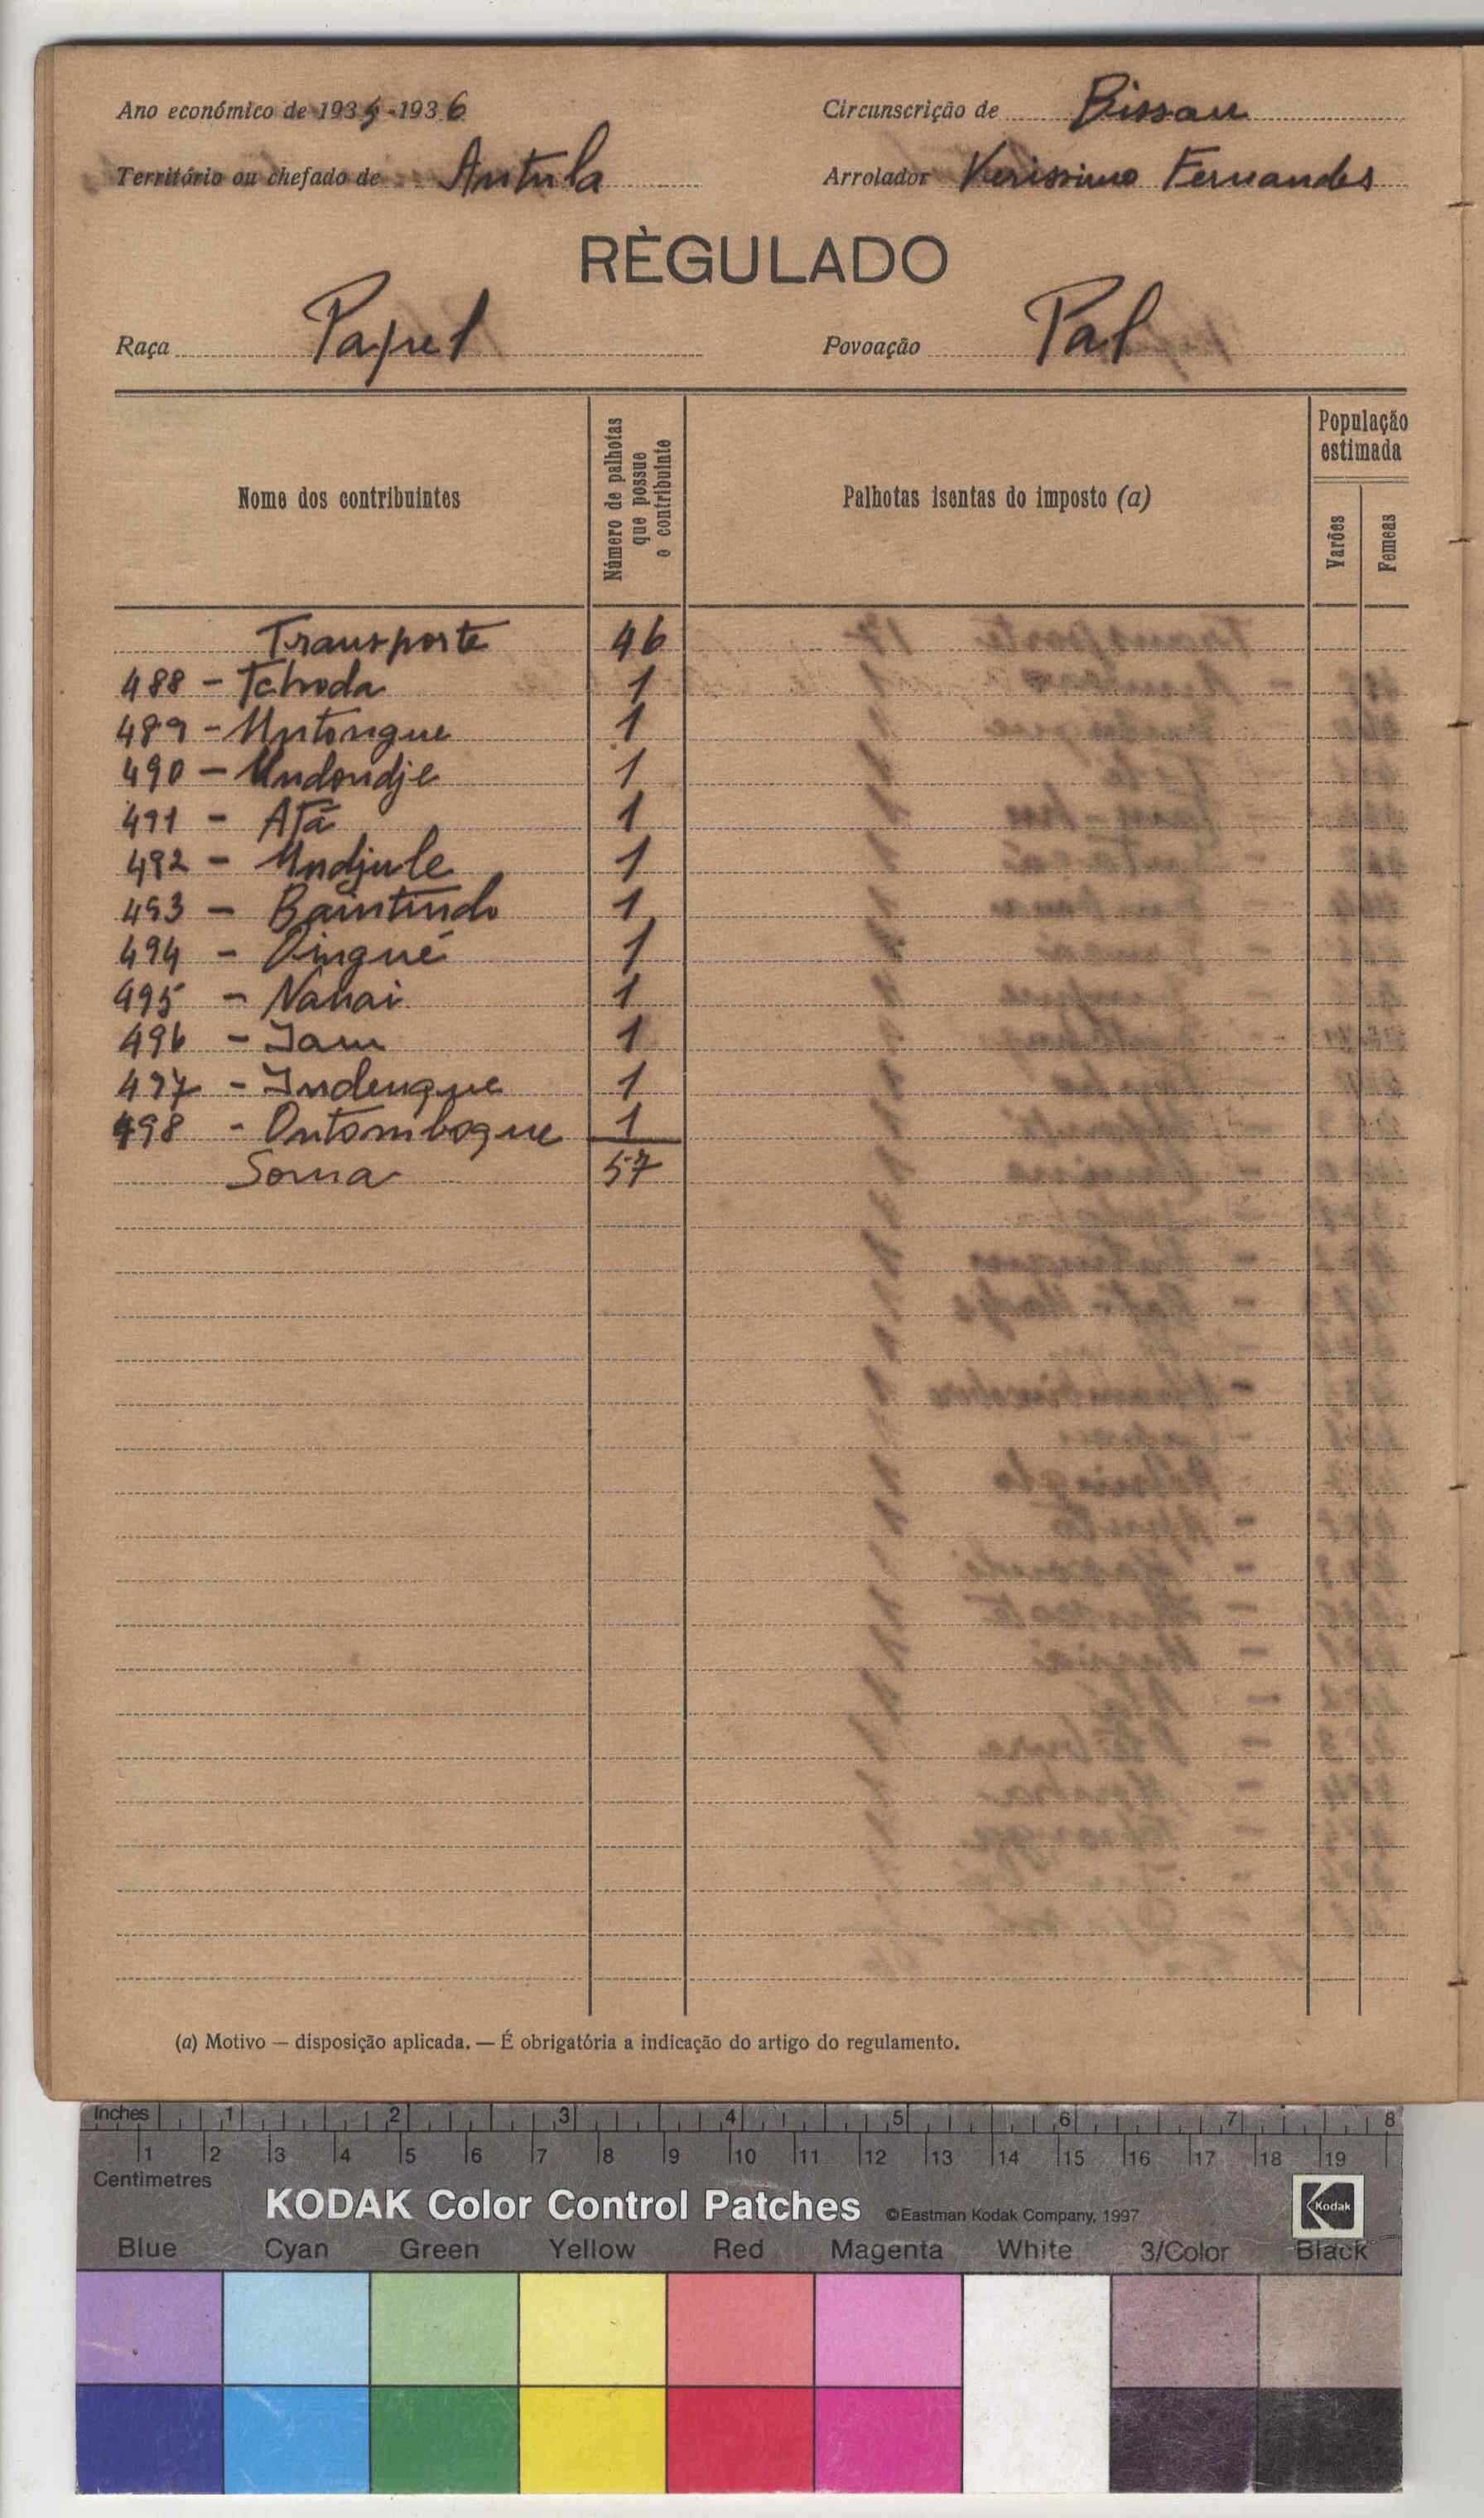 Ano económico de 1935-1936 Circunscrição de Bissau
Território ou chefado de Antula Arrolador Verissimo Fernandes
RÈGULADO
Raça Papel Povoação Pal
Nome dos contribuintes
Número de palhotas que possue o contribuinte
Palhotas isentas do imposto (a)
População estimada
Varões
Femeas
Transporte 46
488 - Tchoda 1
489 - Untongue 1
490 - Undondje 1
491 - Afá 1
492 - Undjule 1
493 - Baintindo 1
494 - Dingué 1
495 - Nahai 1
496 - Iam 1
497 - Indengue 1
498 - Ontombogue 1
Soma 57
(a) Motivo — disposição aplicada. — É obrigatória a indicação do artigo do regulamento.
Inches 1 2 3 4 5 6 7 8
1 2 3 4 5 6 7 8 9 10 11 12 13 14 15 16 17 18 19
Centimetres
KODAK Color Control Patches ©Eastman Kodak Company, 1997 Kodak
Blue Cyan Green Yellow Red Magenta White 3/Color Black